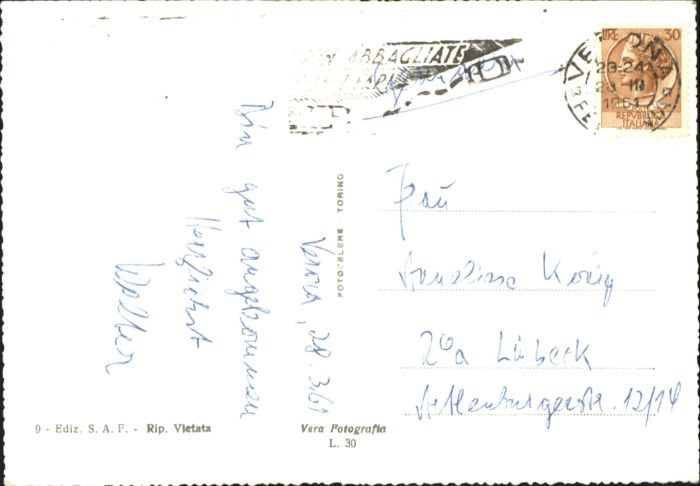 NON ABBAGLIATE
VERONA
23-24
28 III
1961
FE
LIRE 30
REPVBBLICA
ITALIANA
Verona, 28.3.61
Bin gut angekommen
Herzlichst
Walter
FOTOCELERE TORINO
Frau
Annelise König
20a Lübeck
12/14
9 - Ediz. S. A. F. - Rip. Vietata
Vera Fotografia
L. 30